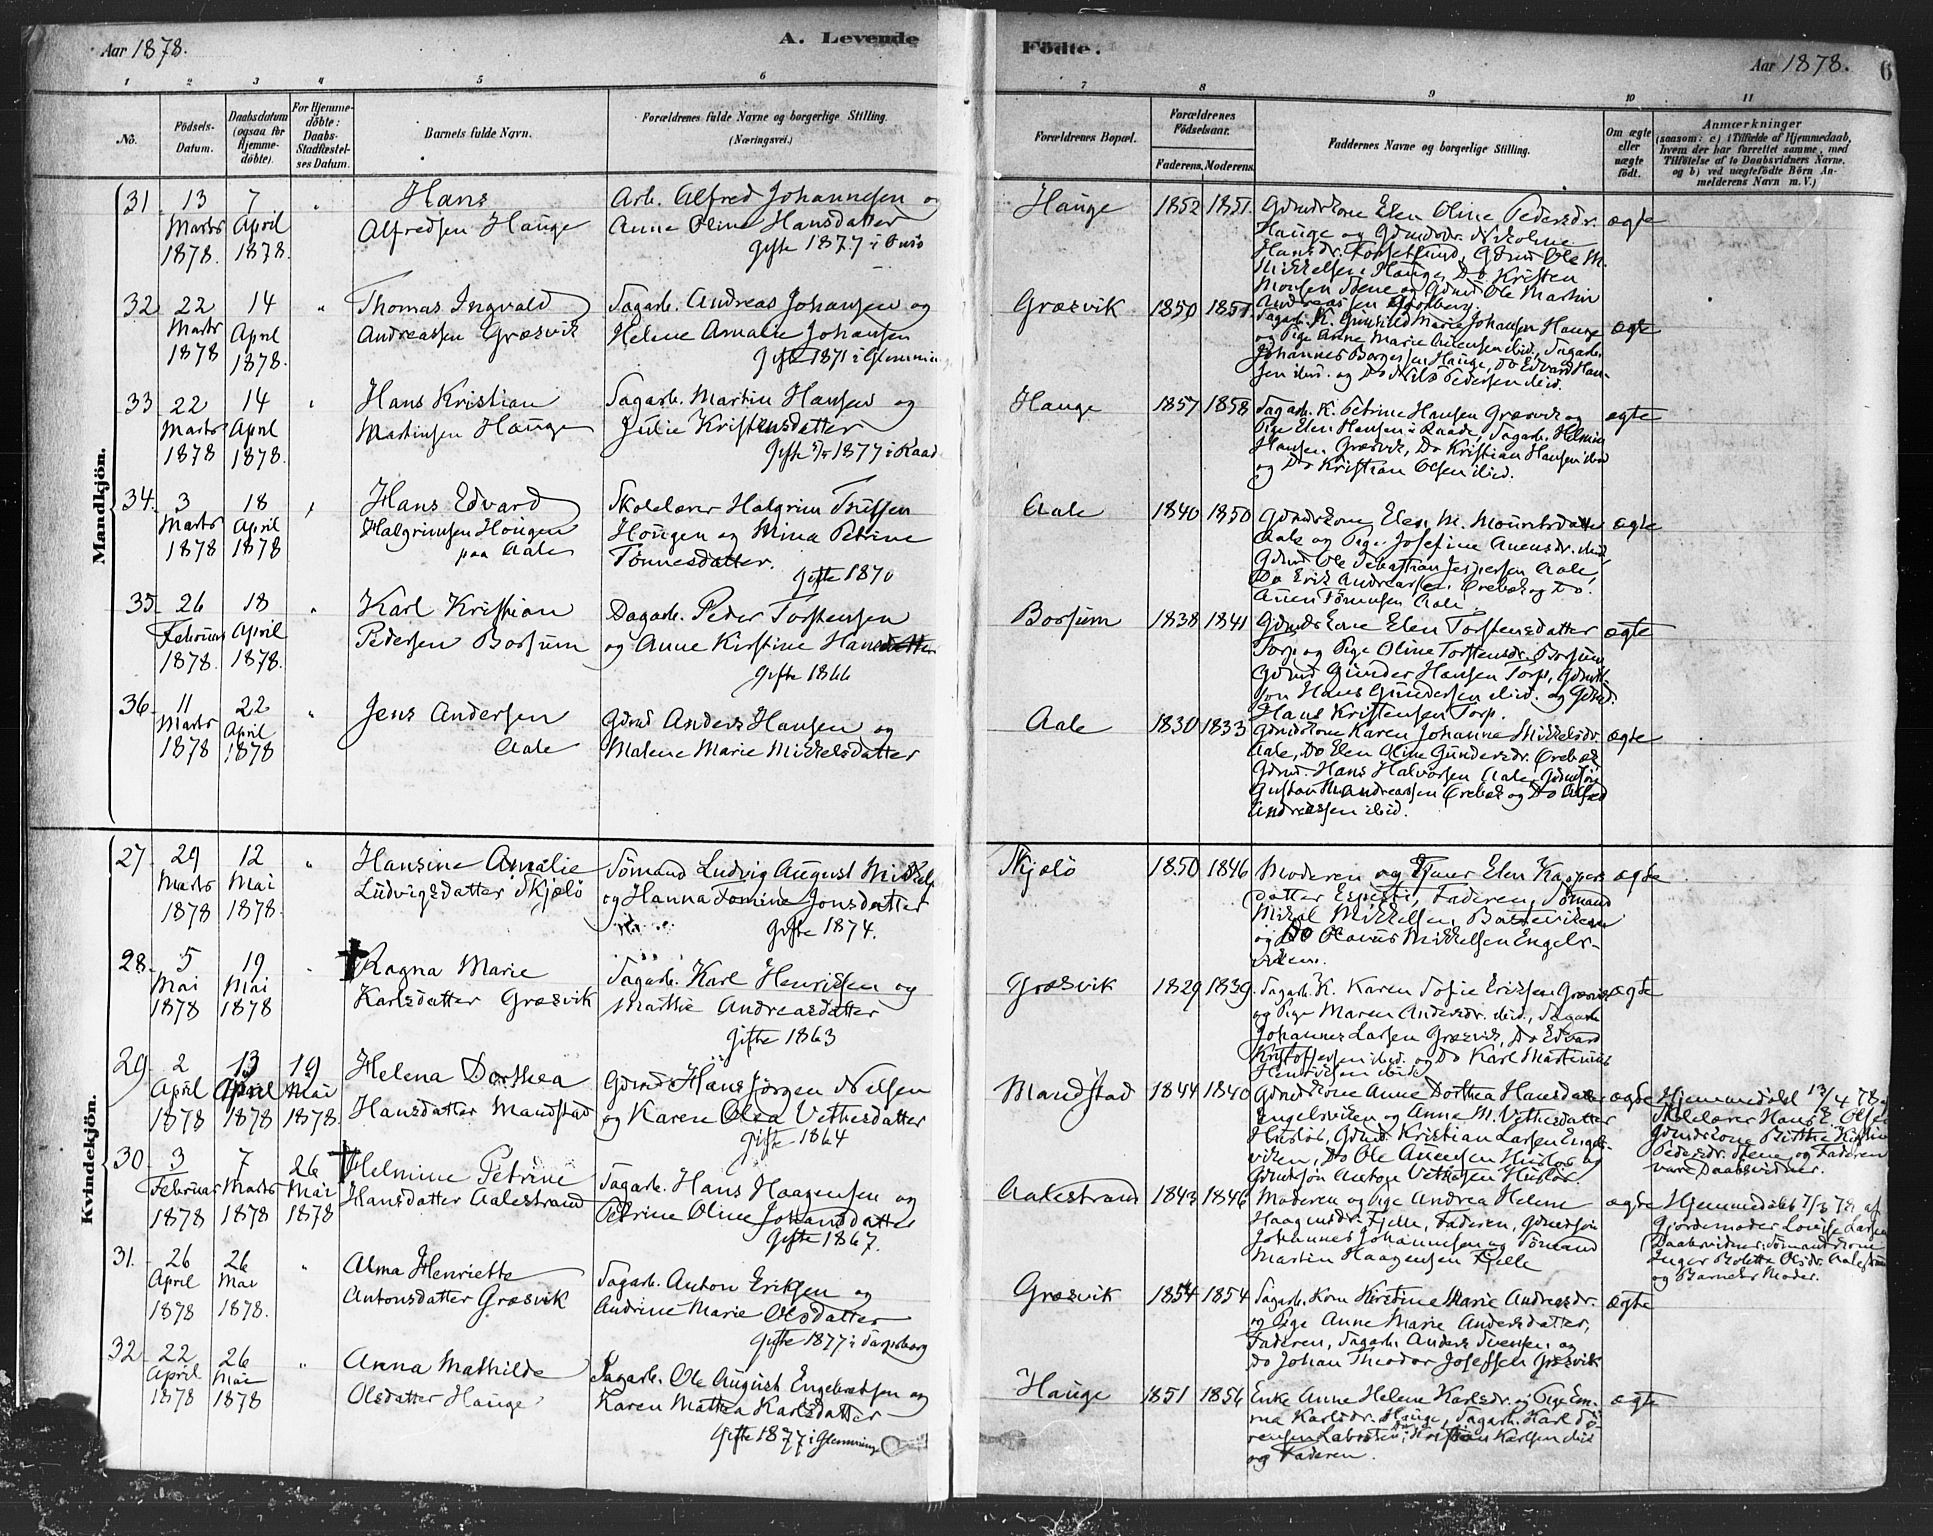 Aar 1878.
A. Levende
Födte.
Aar 1878.
6
1
2
3
4
5
6
7
8
9
10
11
No.
Födsels-
Datum.
Daabsdatum
(ogsaa for
Hjemme-
döbte).
For Hjemme-
döbte:
Daabs-
Stadfæstel-
ses Datum.
Barnets fulde Navn.
Forældrenes fulde Navne og borgerlige Stilling.
(Næringsvei.)
Forældrenes Bopæl.
Forældrenes
Födselsaar.
Faderens.
Moderens.
Faddernes Navne og borgerlige Stilling.
Om ægte
eller
uægte
födt.
Anmærkninger
(saasom: a) i Tilfælde af Hjemmedaab,
hvem der har forrettet samme, med
Tilföielse af to Daabsvidners Navne,
og b) ved uægtefödte Börn An-
melderens Navn m. V.)
Mandkjön.
31
13
Marts
1878.
7
April
1878.
"
Hans
Alfredsen Hauge
Arb. Alfred Johannesen og
Anne Oline Hansdatter
Gifte 1877 i Onsö
Hauge
1852
1851.
Gdmdskone Elen Oline Pedersdr.
Hauge og Gdmdsdr. Nikoline
Hansdr. Torsetlund, Gdmd Ole M.
Mikkelsen Hauge, Do Kristen
Monsen Stene og Gdmd. Ole Martin
Andreassen
ægte
32
22
Marts
1878
14
April
1878.
"
Thomas Ingvald
Andreassen Græsvik
Sagarb. Andreas Johansen og
Helene Amalie Johansen
Gifte 1871 i Glemmin
Græsvik
1850
1851.
Sagarb. K. Gunhild Marie Johansen Hauge
og Pige Anne Marie Arensen ibid., Sagarb.
Johannes Borgersen Hauge, Do Edvard Han-
sen ibid. og Do Nils Pedersen ibid.
ægte
33
22
Marts
1878
14
April
1878.
"
Hans Kristian
Martinsen Hauge
Sagarb. Martin Hansen og
Julie Kristensdatter
Gifte 1877 i Raad
Hauge
1857
1858
Sagarb. K. Petrine Hansen Græsvik og
Pige Elen Hansen i Raade, Sagarb. Helmin
Hansen Græsvik, Do Kristian Hansen ibid
og Do Kristian Olsen ibid.
ægte
34.
3
Marts
1878
18
April
1878
"
Hans Edvard
Halgrimsen Hougen
paa Aale
Skolelærer Halgrim Trulssen
Hougen og Mina Petrine
Tönnesdatter.
Gifte 1870
Aale
1840
1850
Gdmdskone Elen M. Mouritsdatter
Aale og Pige Josefine Arensdr. ibid,
Gdmd Ole Sebastian Jespersen Aale,
Do Erik Andreassen Örebæk og Do.
Aren Tönnesen Aale.
ægte
35
26
Februar
1878.
18
April
1878.
"
Karl Kristian
Pedersen Borsum
Dagarb. Peder Torstensen
og Anne Kirstine Hansdatter
Gifte 1866
Borsum
1838
1841
Gdmdskone Elen Torstensdatter
Torp og Pige Oline Torstensdr. Borsum
Gdmd Gunder Hansen Torp, Gdmds-
sön Hans Gundersen ibid. og Gdmd.
Hans Kristensen Torp.
ægte
36
11
Marts
1878
22
April
1878
"
Jens Andersen
Aale
Gdmd Anders Hansen og
Malene Marie Mikkelsdatter
Aale
1830
1833
Gdmdskone Karen Johanne Mikkelsdr.
Aale, Do Elen Oline Gundersdr. Örebæk
Gdmd. Hans Halvorsen Aale, Gdmdsön
Gustav M. Andreassen Örebæk og Do Alfred
Andreassen ibid.
ægte
Kvindekjön.
27
29
Marts
1878
12
Mai
1878.
"
Hansine Amalie
Ludvigsdatter Skjelö
Sömand Ludvig August Mikkels
og Hanna Tomine Jonsdatter
Gifte 1874.
Skjelö
1850
1846
Moderen og Tjener Elen Kaspers-
datter, Faderen, Sömand
Mikal Mikkelsen Batteviken
og Do Olavus Mikkelsen Engels-
viken.
ægte
28
5
Mai
1878
19
Mai
1878
"
Ragna Marie
Karlsdatter Græsvik
Sagarb. Karl Henriksen og
Marthe Andreasdatter
Gifte 1863
Græsvik
1829
1839.
Sagarb. K. Karen Sofie Eriksen Græsvik
og Pige Maren Andersdr. ibid., Sagarb
Johannes Larsen Græsvik, Do Edvard
Kristoffersen ibid. og Do Karl Martinius
Henriksen ibid
ægte
29
2
April
1878
13
April
1878
19
Mai
1878.
Helena Dorthea
Hansdatter Mandstad
Gdmd Hans Jörgen Nilsen
og Karen Olea Vethesdatter
Gifte 1864
Mandstad
1844
1840
Gdmdskone Anne Dorthea Hansdatter
Engelsviken og Anne M. Vethesdatter
Huslös, Gdmd. Kristian Larsen Engels-
viken, Do Ole Arensen Huslös og
Gdmdssön Anton Vethesen Huslös
ægte
Hjemmedöbt 13/4 78 af
Skolelærer Hans E. Olsen
Gdmdskone Birthe Kirstine
Pedersdr. Stene og Faderen
vare Daabsvidner.
30
3
Februar
1878
7
Marts
1878
26
Mai
1878
Helmine Petrine
Hansdatter Aalestrand
Sagarb. Hans Haagensen og
Petrine Oline Johansdatter
Gifte 1867.
Aalestrand
1843
1846
Moderen og Pige Andrea Helene
Haagensdr. Fjelle, Faderen, Gdmdsön
Johannes Johannesen og Sömand
Martin Haagensen Fjelle
ægte
Hjemmedöbt 7/3 78 af
Gjordemoder Lovise Larsen
Daabsvidner: Sömandskone
Inger Boletta Olsdr. Aalestrand
og Barnets Moder.
31.
26
April
1878
26
Mai
1878.
"
Alma Henriette
Antonsdatter Græsvik
Sagarb. Anton Eriksen og
Andrine Marie Olsdatter
Gifte 1877 i Sarpsborg
Græsvik
1854
1854
Sagarb. Kone Kirstine Marie Andreasdr.
og Pige Anne Marie Andersdatter,
Faderen, Sagarb. Anders Svensen og
Do Johan Theodor Josefsen Græsvik
ægte
32
22
April
1878
26
Mai
1878
"
Anna Mathilde
Olsdatter Hauge
Sagarb. Ole August Engebretsen og
Karen Mathea Karlsdatter
Gifte 1877 i Glemminge
Hauge
1851
1856
Enke Anne Helene Karlsdr. og Pige Em-
ma Karlsdr. Hauge, Sagarb. Karl Sö-
rensen, Kristian Karlsen ibid
og Faderen.
ægte